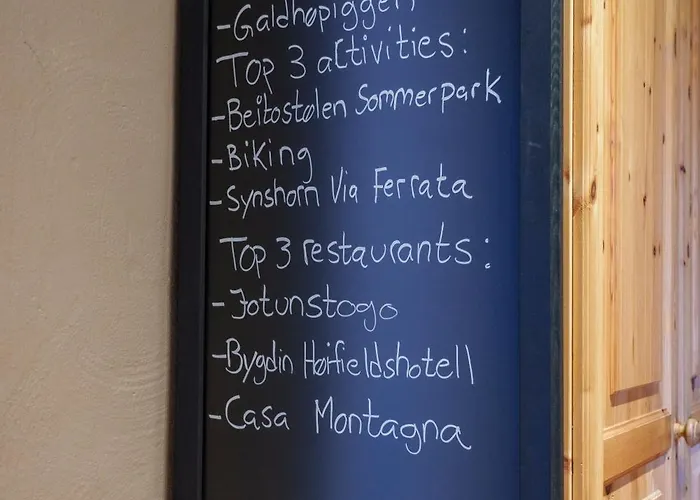 -Galdhøpiggen
Top 3 activities:
-Beitostølen Sommerpark
-Biking
-Synshorn Via Ferrata
Top 3 restaurants:
-Jotunstogo
-Bygdin Høifjeldshotell
-Casa Montagna